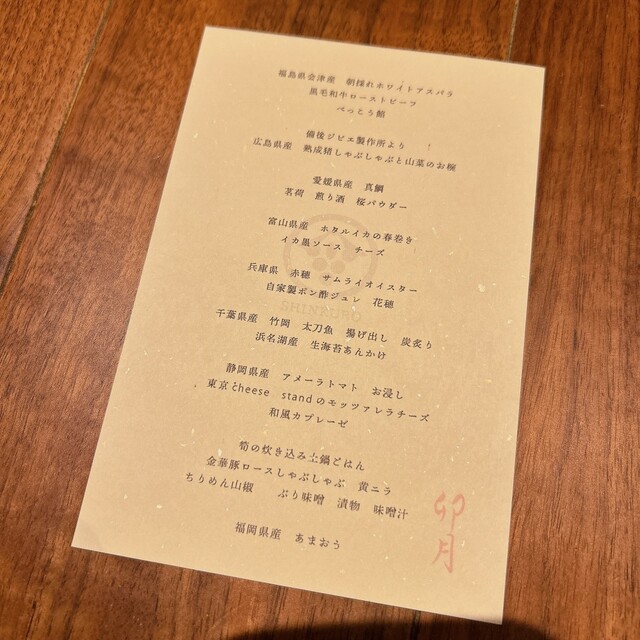 福島県会津産　朝採れホワイトアスパラ
黒毛和牛ローストビーフ
べっとう餡
備後ジビエ製作所より　！
広島県産　熟成猪しゃぶしゃぶと山菜のお椀
愛媛県産　真鯛
茗荷　煎り酒　桜パウダー
富山県産　ホタルイカの春巻き
イカ墨ソース　チーズ
兵庫県　赤穂　サムライオイスター
自家製ポン酢ジュレ　花穂
SHINKURO
千葉県産　竹岡　太刀魚　揚げ出し　炭炙り
浜名湖産　生海苔あんかけ
静岡県産　アメーラトマト　お浸し
東京cheese standのモッツァレラチーズ
和風カプレーゼ
筍の炊き込み土鍋ごはん
金華豚ロースしゃぶしゃぶ　黄ニラ
ちりめん山椒　ぶり味噌　漬物　味噌汁
福岡県産　あまおう
卯月